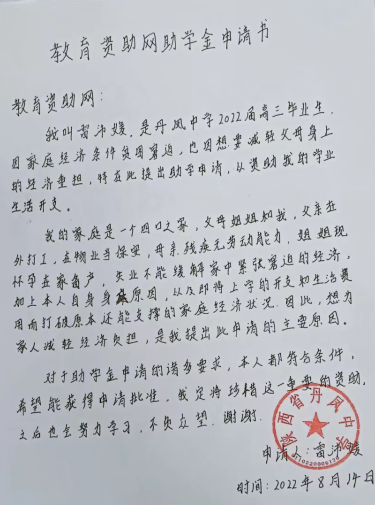 教育资助网助学金申请书
教育资助网：
我叫雷沛媛，是丹凤中学2022届高三毕业生，
因家庭经济条件贫困窘迫，也因想要减轻父母身上
的经济重担，特在此提出助学申请，以资助我的学业
生活开支。
我的家庭是一个四口之家，父母姐姐和我，父亲在
外打工，在物业当保安，母亲残疾无劳动能力，姐姐现
怀孕在家备产，失业不能缓解家中紧张窘迫的经济，
加上本人自身身原因，以及即将上学的开支和生活费
用而打破原本还能支撑的家庭经济状况。因此，想为
家人减轻经济负担，是我提出此申请的主要原因。
对于助学金申请的诸多要求，本人都符合条件，
希望能获得申请批准。我定将珍惜这一重要的资助，
之后也会努力学习，不负众望，谢谢.
陕西省丹凤中学
申请人：雷沛媛
时间：2022年8月14日